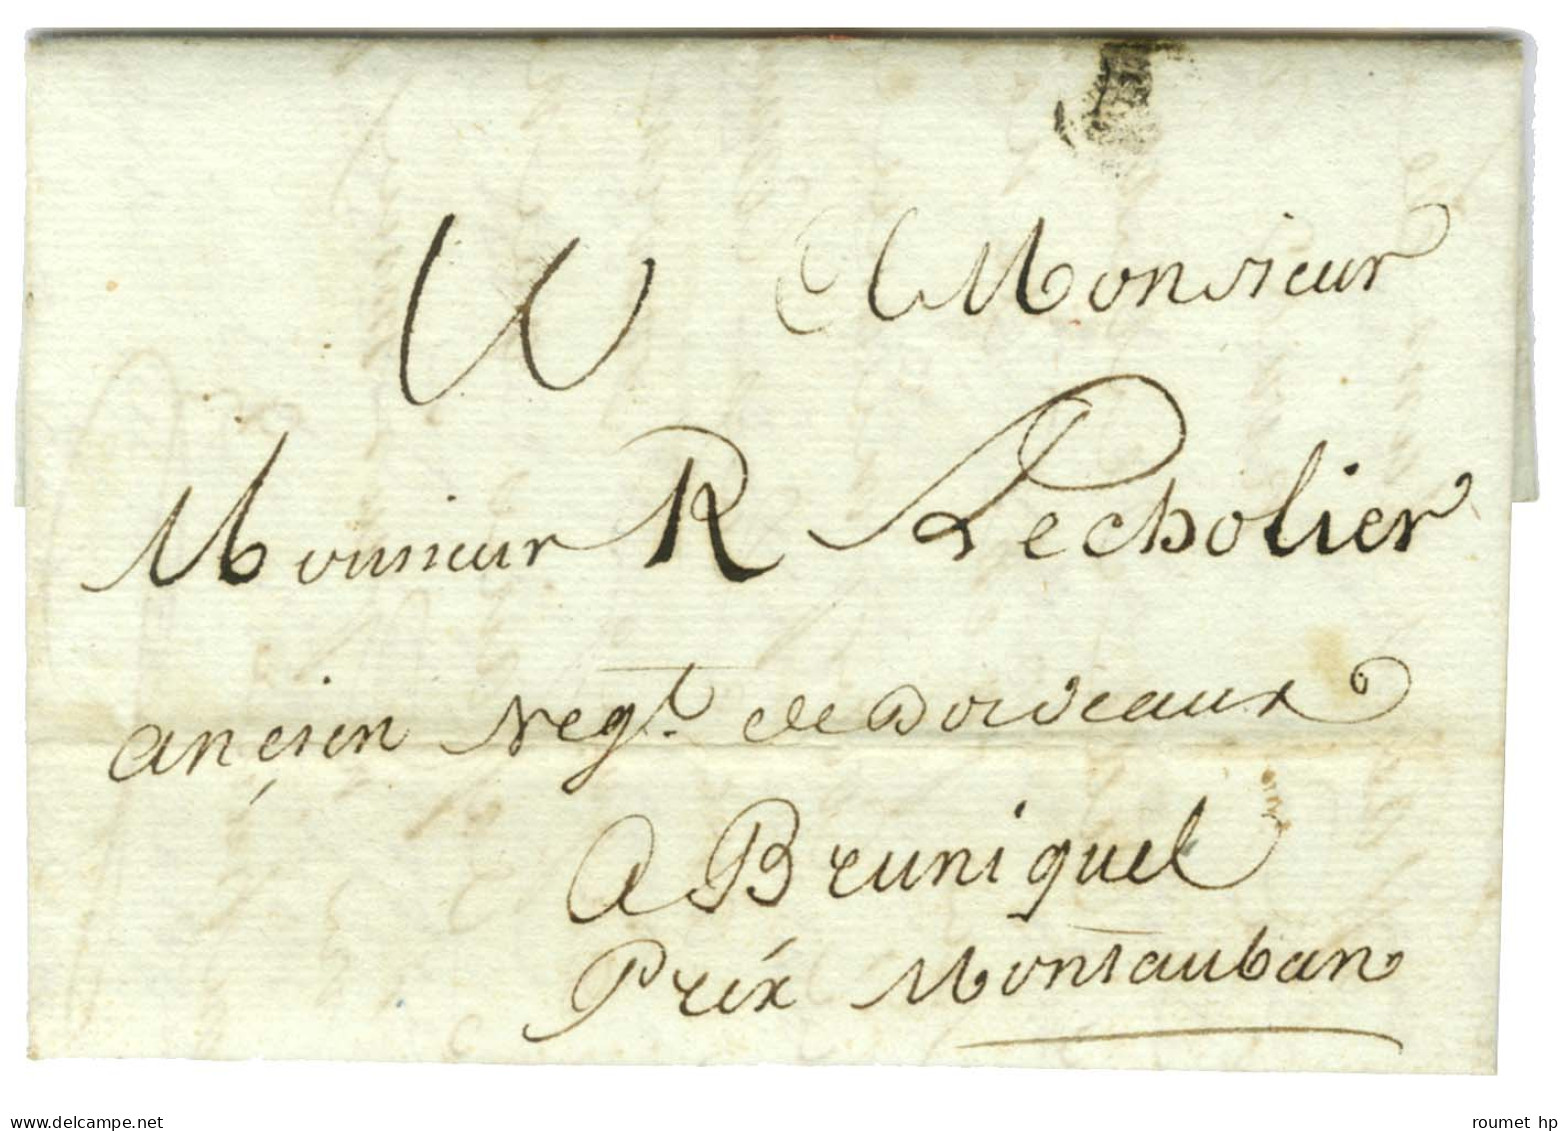 Monsieur
Monsieur R Lecholier
ançien Regt. de Bordeaux
A Bruniquel
Préix Montauban
www.delcampe.net
roumet hp